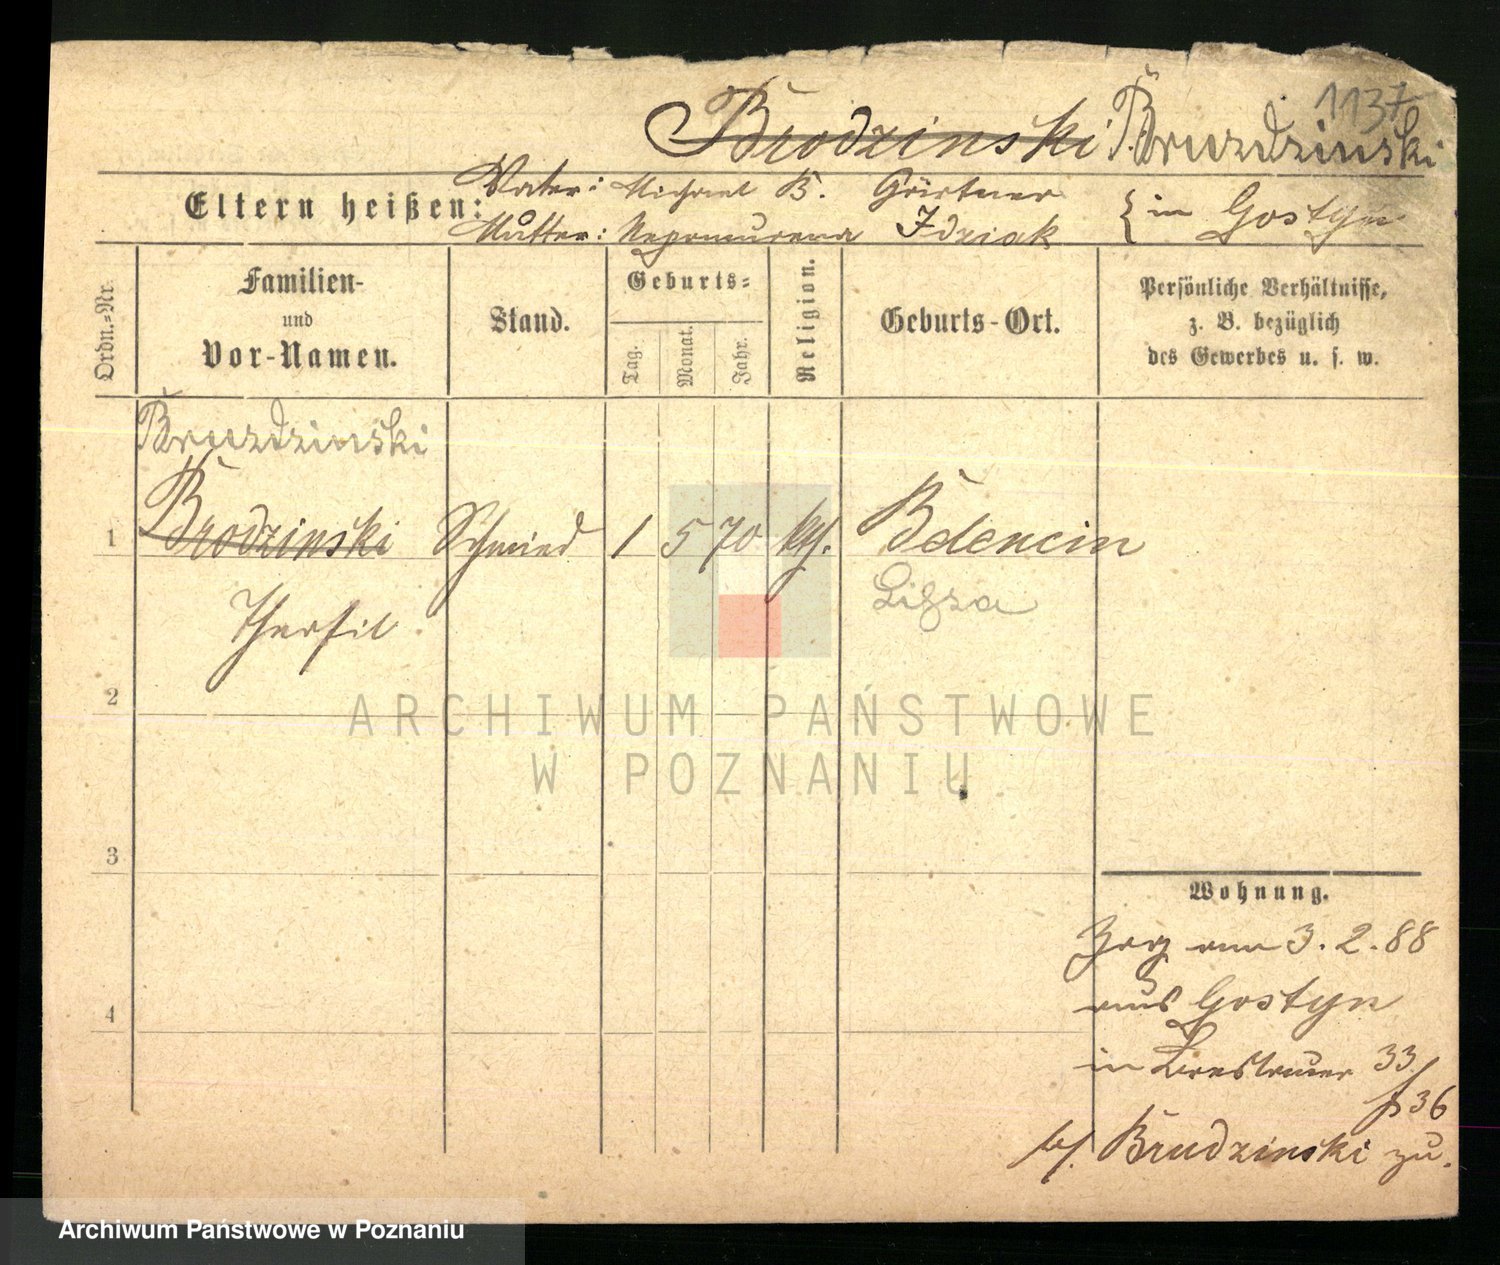 1137
Brodzinski Bruzdzinski
Eltern heißen:
Vater: Michael B. Gärtner
Mutter: Nepomucena Idziak
} in Gostyn
Ordn.=Nr.
Familien-
und
Vor-Namen.
Stand.
Geburts=
Tag.
Monat.
Jahr.
Religion.
Geburts-Ort.
Persönliche Verhältnisse,
z. B. bezüglich
des Gewerbes u. s. w.
Bruzdzinski
1 Brodzinski Schmied 1 5 70 kth. Bdencin
Thersil
2
3
4
Wohnung.
Zzg am 3. 2. 88
aus Gostyn
in 33/36
bf. Brudzinski zu.
ARCHIWUM PAŃSTWOWE
W POZNANIU
Archiwum Państwowe w Poznaniu